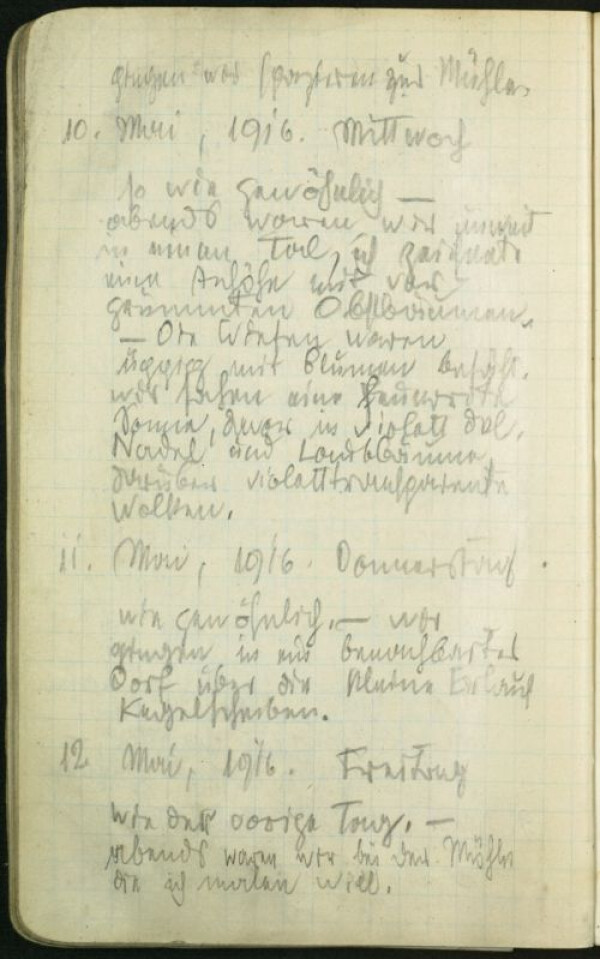 gingen wir spazieren zur Mühle.
10. Mai, 1916. Mittwoch
so wie gewöhnlich —
abends waren wir
in einem Tal, ich zeichnete
eine Anhöhe mit vier
gekrümmten Obstbäumen.
— Die Wiesen waren
üppig mit Blumen besäht.
wir sahen eine feuerrote
Sonne, davor in violett dkl.
Nadel und Laubbäume,
darüber violetttransparente
Wolken.
11. Mai, 1916. Donnerstag.
wie gewöhnlich. — wir
gingen in ein benachbartes
Dorf über die kleine Erlauf
Kegelscheiben.
12 Mai, 1916. Freitag
wie der vorige Tag. —
abends waren wir bei der Mühle
die ich malen will.